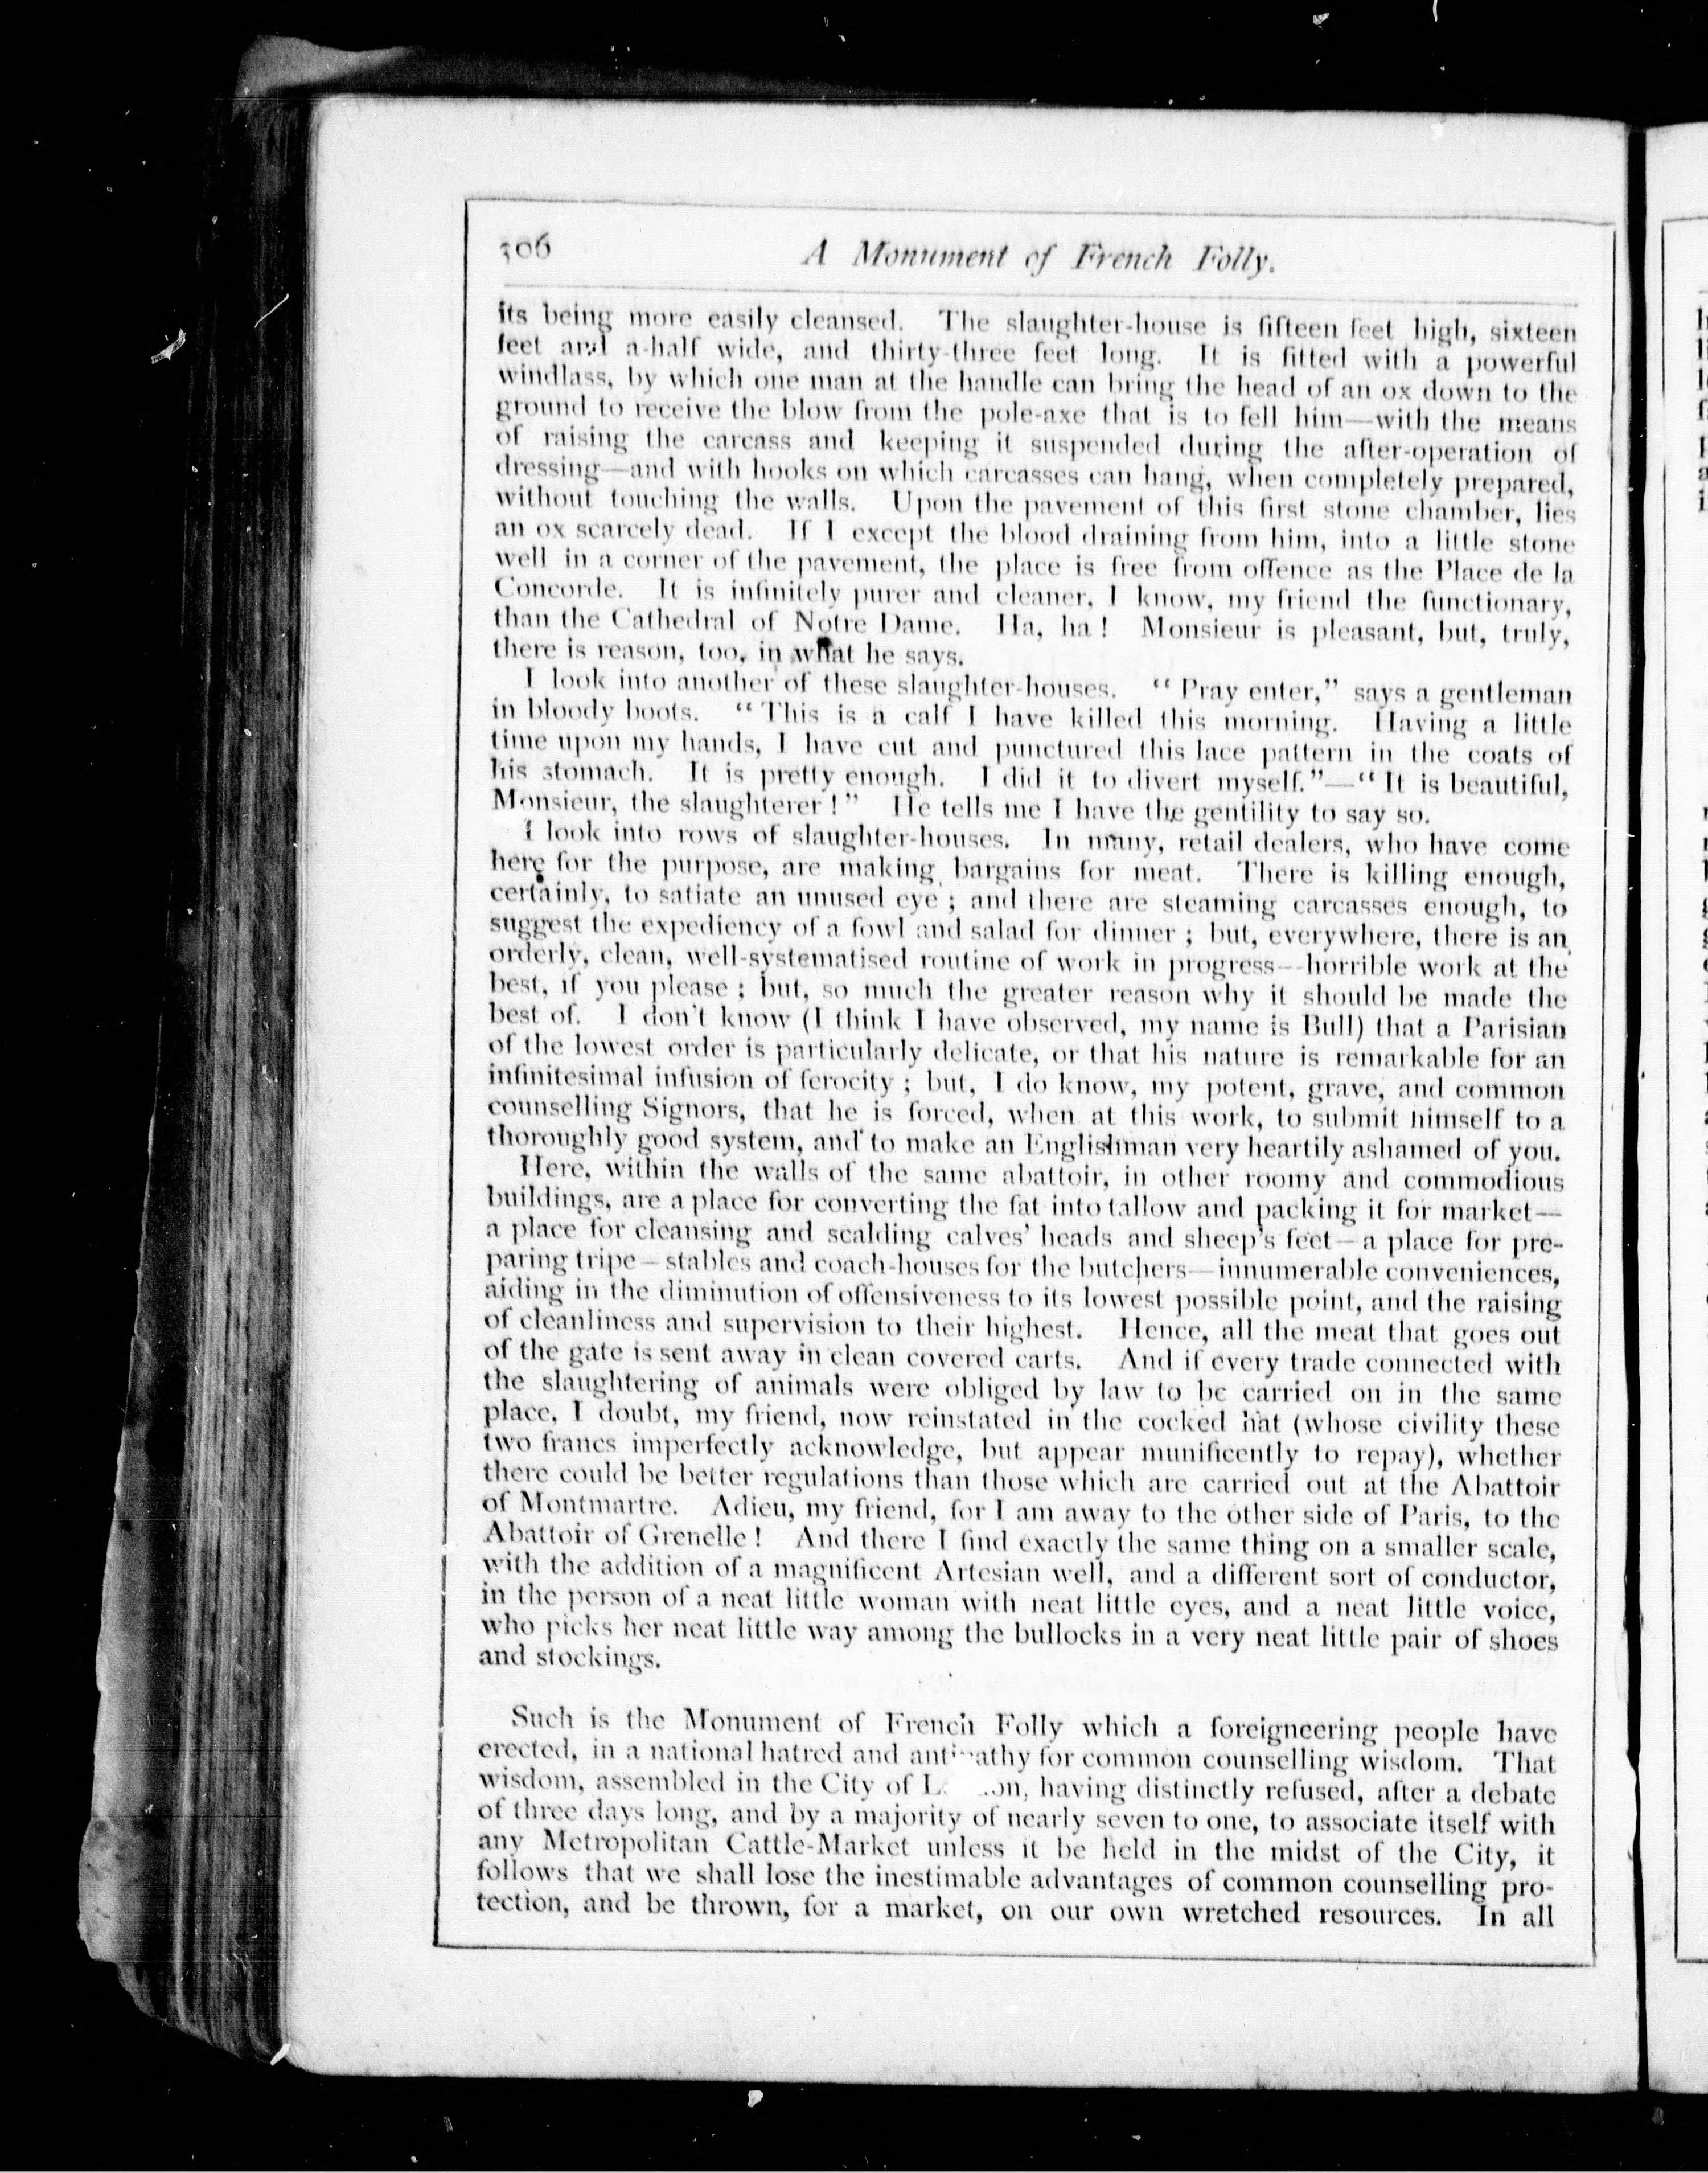 306 A Monument of French Folly.
its being more easily cleansed. The slaughter-house is fifteen feet high, sixteen
feet and a-half wide, and thirty-three feet long. It is fitted with a powerful
windlass, by which one man at the handle can bring the head of an ox down to the
ground to receive the blow from the pole-axe that is to fell him—with the means
of raising the carcass and keeping it suspended during the after-operation of
dressing—and with hooks on which carcasses can hang, when completely prepared,
without touching the walls. Upon the pavement of this first stone chamber, lies
an ox scarcely dead. If I except the blood draining from him, into a little stone
well in a corner of the pavement, the place is free from offence as the Place de la
Concorde. It is infinitely purer and cleaner, I know, my friend the functionary,
than the Cathedral of Notre Dame. Ha, ha! Monsieur is pleasant, but, truly,
there is reason, too, in what he says.
I look into another of these slaughter-houses. "Pray enter," says a gentleman
in bloody boots. "This is a calf I have killed this morning. Having a little
time upon my hands, I have cut and punctured this lace pattern in the coats of
his stomach. It is pretty enough. I did it to divert myself."—"It is beautiful,
Monsieur, the slaughterer!" He tells me I have the gentility to say so.
I look into rows of slaughter-houses. In many, retail dealers, who have come
here for the purpose, are making bargains for meat. There is killing enough,
certainly, to satiate an unused eye; and there are steaming carcasses enough, to
suggest the expediency of a fowl and salad for dinner; but, everywhere, there is an
orderly, clean, well-systematised routine of work in progress—horrible work at the
best, if you please; but, so much the greater reason why it should be made the
best of. I don't know (I think I have observed, my name is Bull) that a Parisian
of the lowest order is particularly delicate, or that his nature is remarkable for an
infinitesimal infusion of ferocity; but, I do know, my potent, grave, and common
counselling Signors, that he is forced, when at this work, to submit himself to a
thoroughly good system, and to make an Englishman very heartily ashamed of you.
Here, within the walls of the same abattoir, in other roomy and commodious
buildings, are a place for converting the fat into tallow and packing it for market—
a place for cleansing and scalding calves' heads and sheep's feet—a place for pre-
paring tripe—stables and coach-houses for the butchers—innumerable conveniences,
aiding in the diminution of offensiveness to its lowest possible point, and the raising
of cleanliness and supervision to their highest. Hence, all the meat that goes out
of the gate is sent away in clean covered carts. And if every trade connected with
the slaughtering of animals were obliged by law to be carried on in the same
place, I doubt, my friend, now reinstated in the cocked hat (whose civility these
two francs imperfectly acknowledge, but appear munificently to repay), whether
there could be better regulations than those which are carried out at the Abattoir
of Montmartre. Adieu, my friend, for I am away to the other side of Paris, to the
Abattoir of Grenelle! And there I find exactly the same thing on a smaller scale,
with the addition of a magnificent Artesian well, and a different sort of conductor,
in the person of a neat little woman with neat little eyes, and a neat little voice,
who picks her neat little way among the bullocks in a very neat little pair of shoes
and stockings.
Such is the Monument of French Folly which a foreigneering people have
erected, in a national hatred and antipathy for common counselling wisdom. That
wisdom, assembled in the City of London, having distinctly refused, after a debate
of three days long, and by a majority of nearly seven to one, to associate itself with
any Metropolitan Cattle-Market unless it be held in the midst of the City, it
follows that we shall lose the inestimable advantages of common counselling pro-
tection, and be thrown, for a market, on our own wretched resources. In all